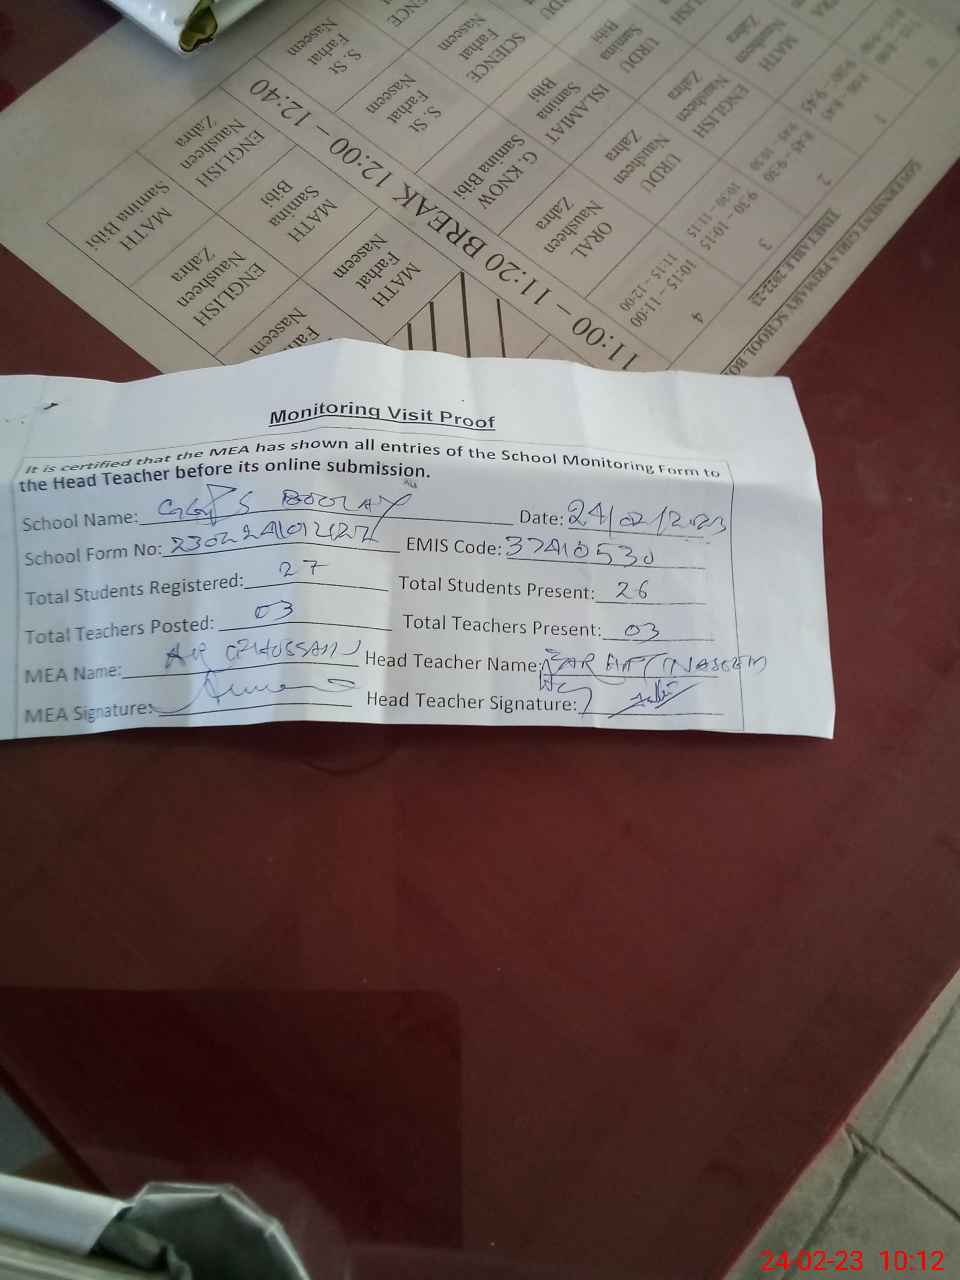 GOVERNMENT GIRLS PRIMARY SCHOOL
TIMETABLE 2022-23
1 2 3 4
8:45 - 9:30
9:30 - 10:15
10:15 - 11:00
9:00 - 9:45
9:45 - 10:30
10:30 - 11:15
11:15 - 12:00
MATH
Nausheen
Zahra
ENGLISH
Nausheen
Zahra
URDU
Nausheen
Zahra
ORAL
Nausheen
Zahra
ENGLISH
URDU
Samina
Bibi
ISLAMIAT
Samina
Bibi
G. KNOW
Samina Bibi
SCIENCE
Farhat
Naseem
S. St
Farhat
Naseem
S. St
Farhat
Naseem
11:00 – 11:20 BREAK 12:00 – 12:40
MATH
Farhat
Naseem
MATH
Samina
Bibi
ENGLISH
Nausheen
Zahra
Naseem
ENGLISH
Nausheen
Zahra
MATH
Samina Bibi
Monitoring Visit Proof
It is certified that the MEA has shown all entries of the School Monitoring Form to
the Head Teacher before its online submission.
School Name: Date: 24/02/2023
School Form No: EMIS Code: 37410530
Total Students Registered: 27 Total Students Present: 26
Total Teachers Posted: 03 Total Teachers Present: 03
MEA Name: Head Teacher Name: FARHAT NASEEM
MEA Signature: Head Teacher Signature:
24-02-23 10:12